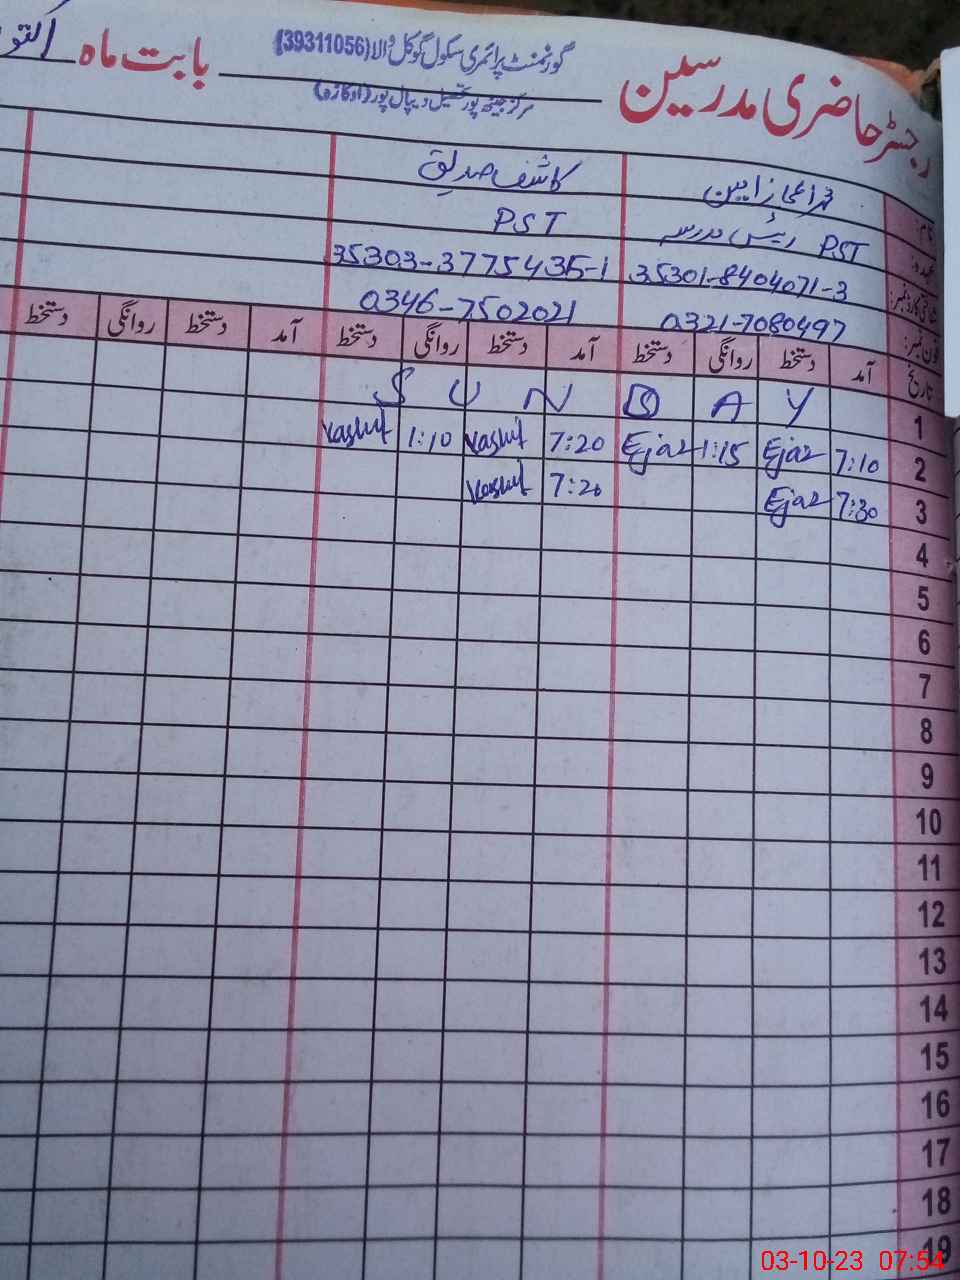 رجسٹر حاضری مدرسین
گورنمنٹ پرائمری سکول گوکل والا (39311056)
بابت ماہ اکتو
مرکز جیٹھ پور تحصیل دیپال پور (اوکاڑہ)
نام: کاشف صدیق
عہدہ: PST رئیس مدرسہ PST
35301-8404071-3 35303-3775435-1
فون نمبر: 0321-7080497 0346-7502021
تاریخ آمد دستخط روانگی دستخط آمد دستخط روانگی دستخط آمد دستخط روانگی دستخط
1 S U N D A Y
2 7:10 Ejaz 1:15 Ejaz 7:20 Kashif 1:10 Kashif
3 7:30 Ejaz 7:20 Kashif
4
5
6
7
8
9
10
11
12
13
14
15
16
17
18
19
03-10-23 07:54